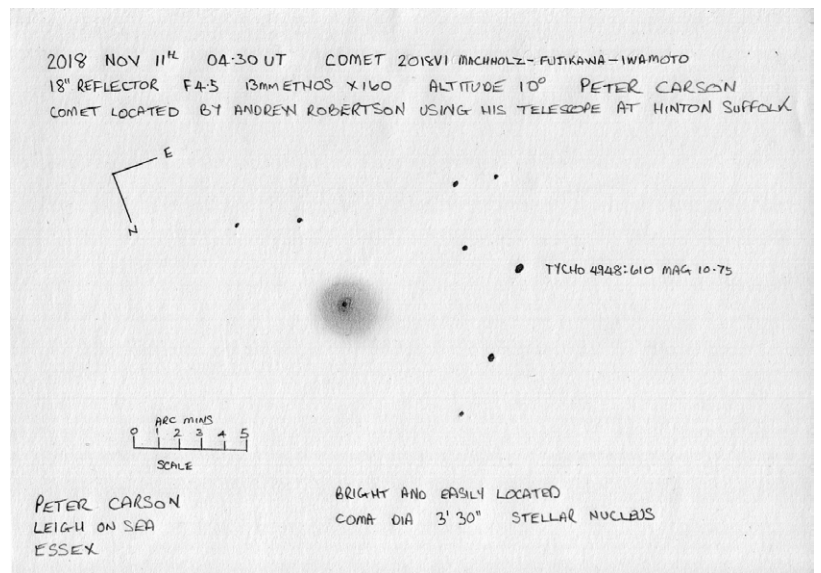 2018 NOV 11TH 04·30 UT COMET 2018V1 MACHHOLZ-FUJIKAWA-IWAMOTO
18" REFLECTOR F4·5 13mm ETHOS X160 ALTITUDE 10° PETER CARSON
COMET LOCATED BY ANDREW ROBERTSON USING HIS TELESCOPE AT HINTON SUFFOLK
E
N
TYCHO 4948:610 MAG 10·75
ARC MINS
0 1 2 3 4 5
SCALE
PETER CARSON
LEIGH ON SEA
ESSEX
BRIGHT AND EASILY LOCATED
COMA DIA 3' 30" STELLAR NUCLEUS